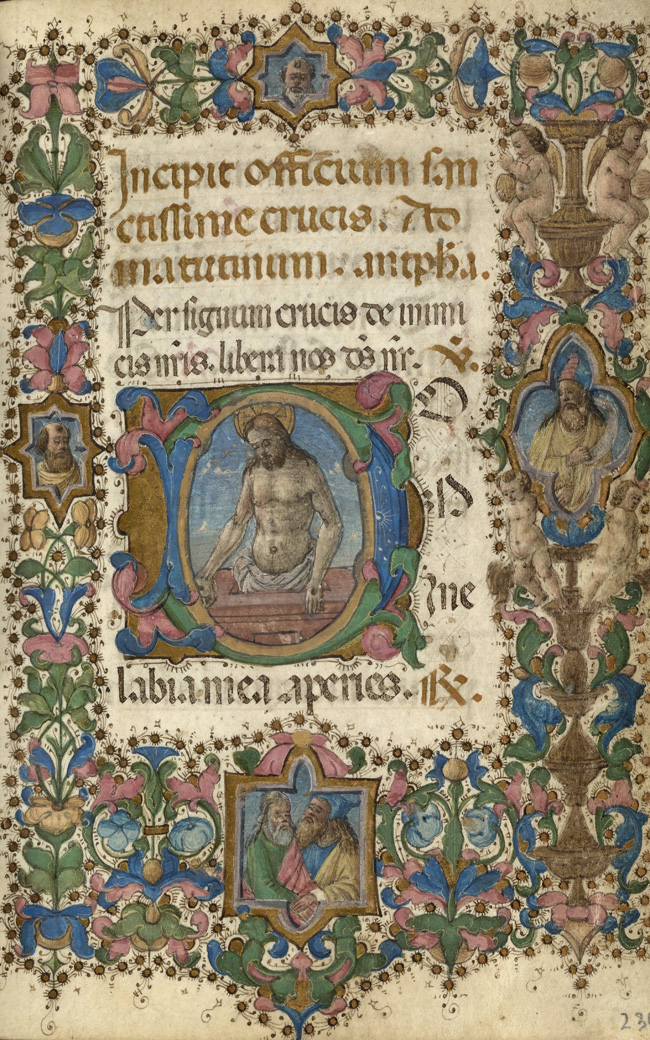 Incipit officium san
ctissime crucis. Ad
matutinum. antpha.
Per signum crucis de inimi
cis nris. libera nos ds nr. V.
D O
M
Ine
labia mea aperies. R.
230